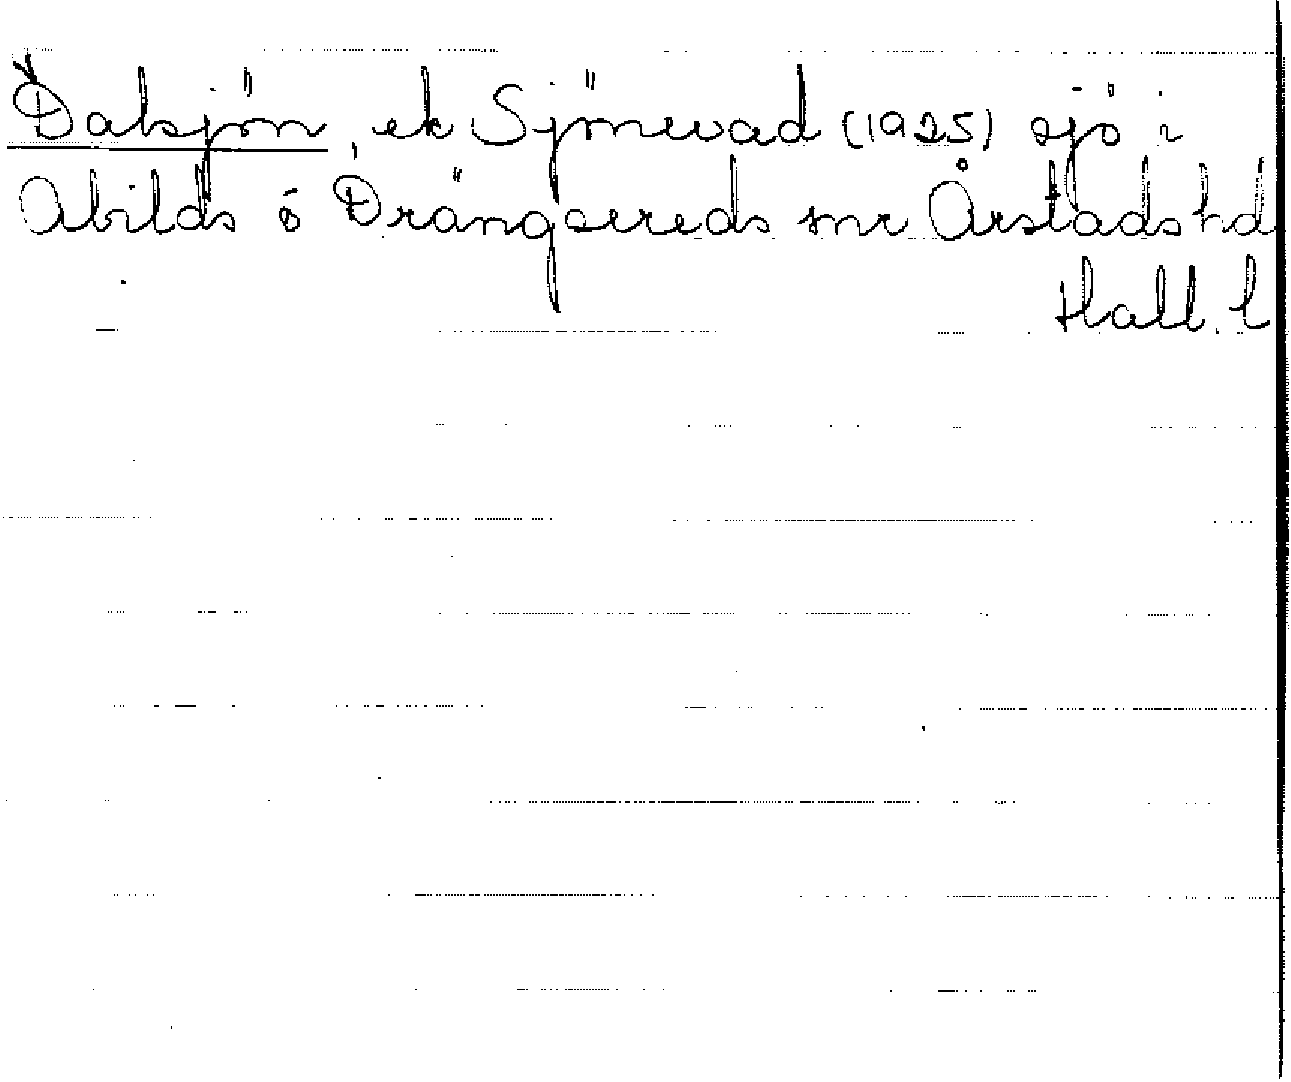 Dabsjön, ek Sjönevad (1925) sjö i
Abilds o Drängsereds snr Årstads hd
Hall. l